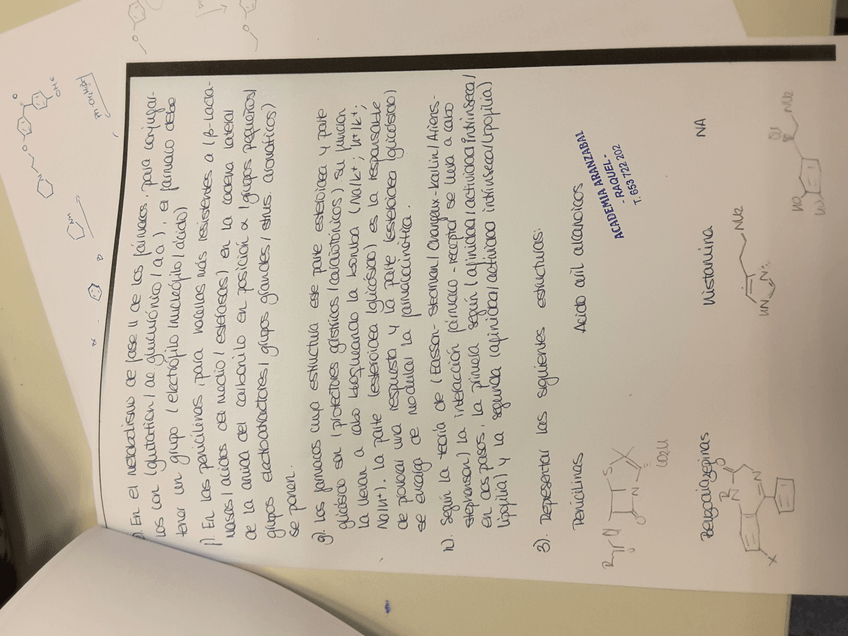 e). En el metabolismo de fase II de los fármacos, para conjugar-
los con (glutation / ac glucurónico / a.a.), el fármaco debe
tener un grupo (electrófilo / nucleófilo / ácido)
f). En las penicilinas, para hacerlas más resistentes a (β-lacta-
masas / ácidos del medio / esterasas) en la cadena lateral
de la amida del carbonilo en posición α (grupos pequeños /
grupos electroatractores / grupos grandes / sttus aromáticos)
se ponen.
g). Los fármacos cuya estructura este parte esteroidea y parte
glicósido son (protectores gástricos / cardiotónicos) su función
la llevan a cabo bloqueando la bomba (Na/K+; H+/K+;
Na/H+). La parte (esteroidea / glicósido) es la responsable
de provocar una respuesta y la parte (esteroidea / glicósido)
se encarga de modular la farmacocinética.
h). Según la teoría de (Easson-Stedman / Changeux-Karlin / Ariens-
Stephenson) la interacción fármaco-receptor se lleva a cabo
en dos pasos, la primera según (afinidad / actividad intrínseca /
lipofilia) y la segunda (afinidad / actividad intrínseca / lipofilia)
3). Representar las siguientes estructuras:
Penicilinas Acido aril alcanoicos
R O S N CO2H
ACADEMIA ARANZABAL
- RAQUEL -
T. 653 722 202
Benzodiazepinas Histamina NA
R N N X
HN N NH2
HO HO OH NH2
OMe
NH